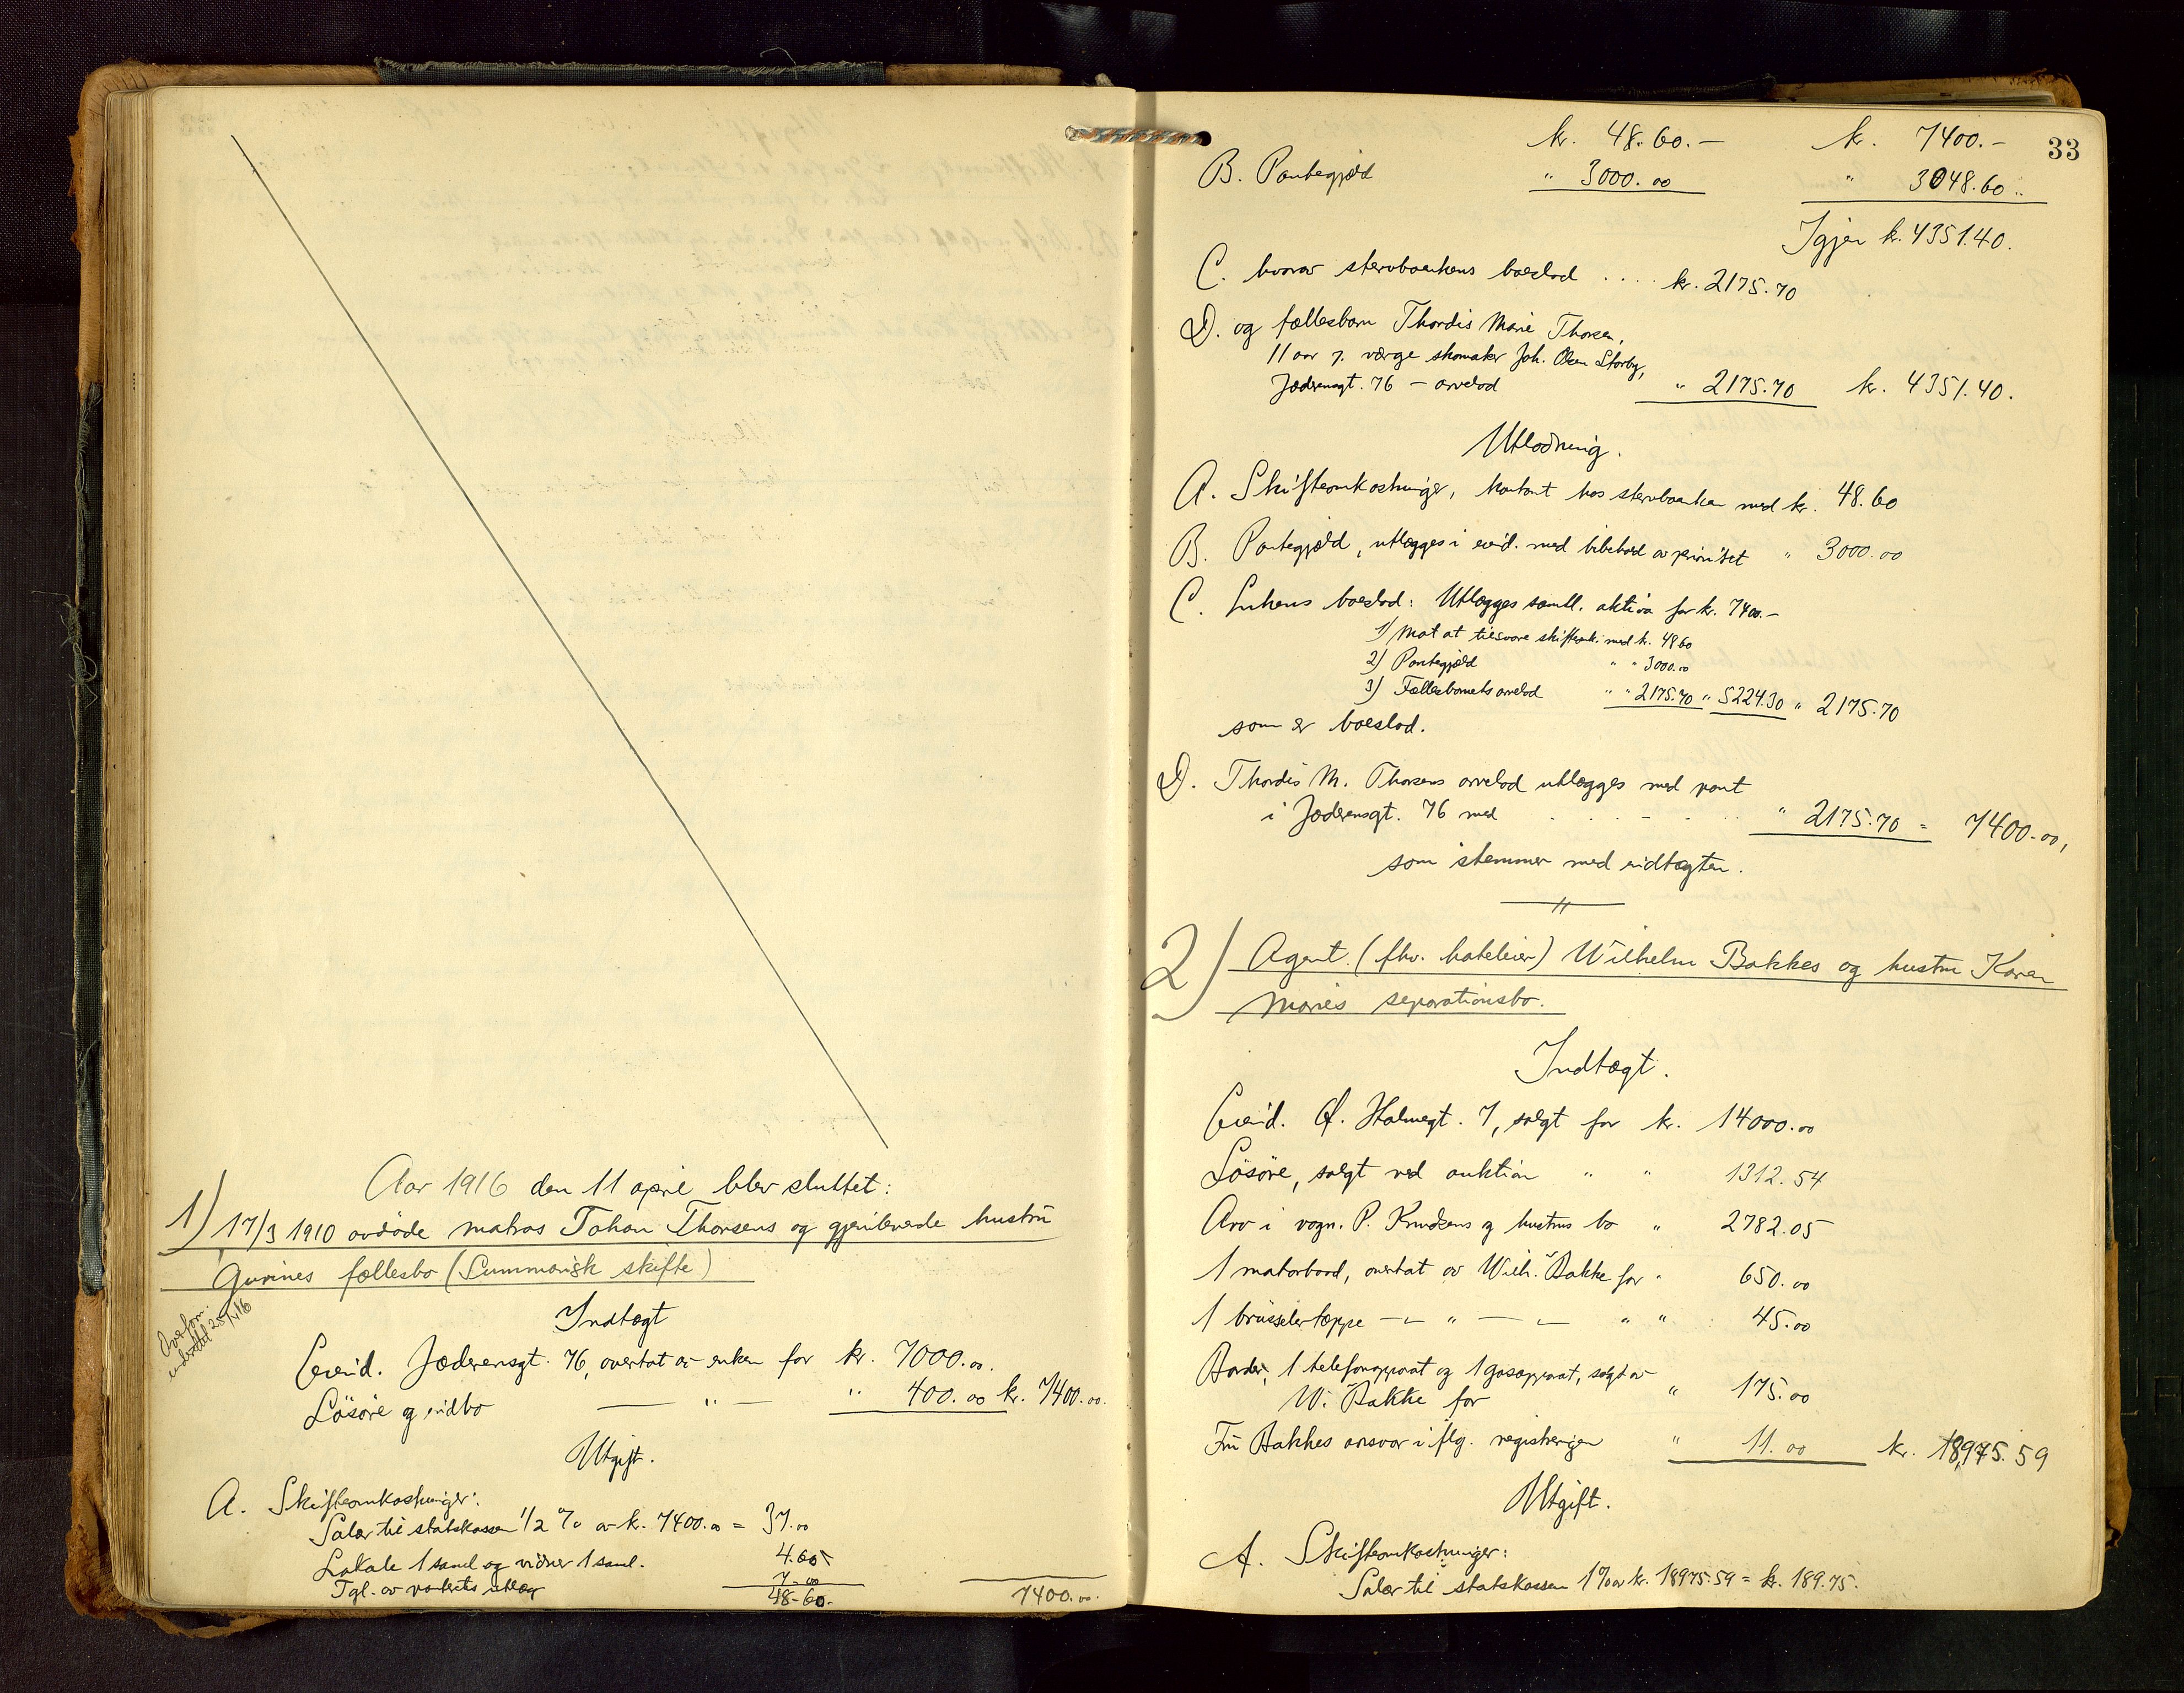 Aar 1916 den 11 april blev sluttet:
1) 17/3 1910 avdøde matros Johan Thorsens og gjenlevende hustru
Gurines fællesbo (Summarisk skifte)
25/4 16
Indtægt
Eiend. Jæderensgt. 76, overtat av enken for kr. 7000.00.
Løsøre og indbo — " — " 400.00 kr. 7400.00.
Utgift.
A. Skifteomkostninger:
Salær til statskassen 1/2 % av kr. 7400.00 = 37.00
Lokale 1 saml og vidner 1 saml. 4.60
Tgl. av pantets utlæg 7.00
48.60. 7400.00.
33
kr. 48.60.— kr. 7400.—
B. Pantegjæld " 3000.00 " 3048.60..
Igjen kr. 4351.40.
C. hvorav stervboenkens boeslod .... kr. 2175.70
D. og fællesbarn Thordis Marie Thorsen,
11 aar g. værge skomaker Joh. Olsen Storby,
Jæderensgt. 76 — arvelod " 2175.70 kr. 4351.40.
Utlodning.
A. Skifteomkostninger, kontant hos stervboenken med kr. 48.60
B. Pantegjæld, utlægges i eiend. med bibehold av prioritet " 3000.00
C. Enkens boeslod: Utlægges samtl. aktiva for kr. 7400.—
1) Mot at tilsvare skifteomk. med kr. 48 60
2) Pantegjæld " " 3000.00
3) Fællesbarnets arvelod " " 2175.70 " 5224.30 " 2175.70
som er boeslod.
D. Thordis M. Thorsens arvelod utlægges med pant
i Jæderensgt. 76 med . . - . . " 2175.70 = 7400.00,
som stemmer med indtægten.
2) Agent (fhv. hoteleier) Wilhelm Bakkes og hustru Karen
Maries separationsbo.
Indtægt.
Eiend. Ø. Holmegt. 7, solgt for kr. 14000.00
Løsøre, solgt ved auktion " " 1312.54
Arv i vogn. P. Knudsens og hustrus bo " 2782.05
1 motorbaad, overtat av Wilh. Bakke for " 650.00
1 brüsselertæppe — " — " " 45.00
Border, 1 telefonapparat og 1 gasapparat, solgt av
W. Bakke for " 175.00
Fru Bakkes ansvar i flg. registreringen " 11.00 kr. 18,975.59
Utgift.
A. Skifteomkostninger:
Salær til statskassen 1% av kr. 18975.59 = kr. 189.75.